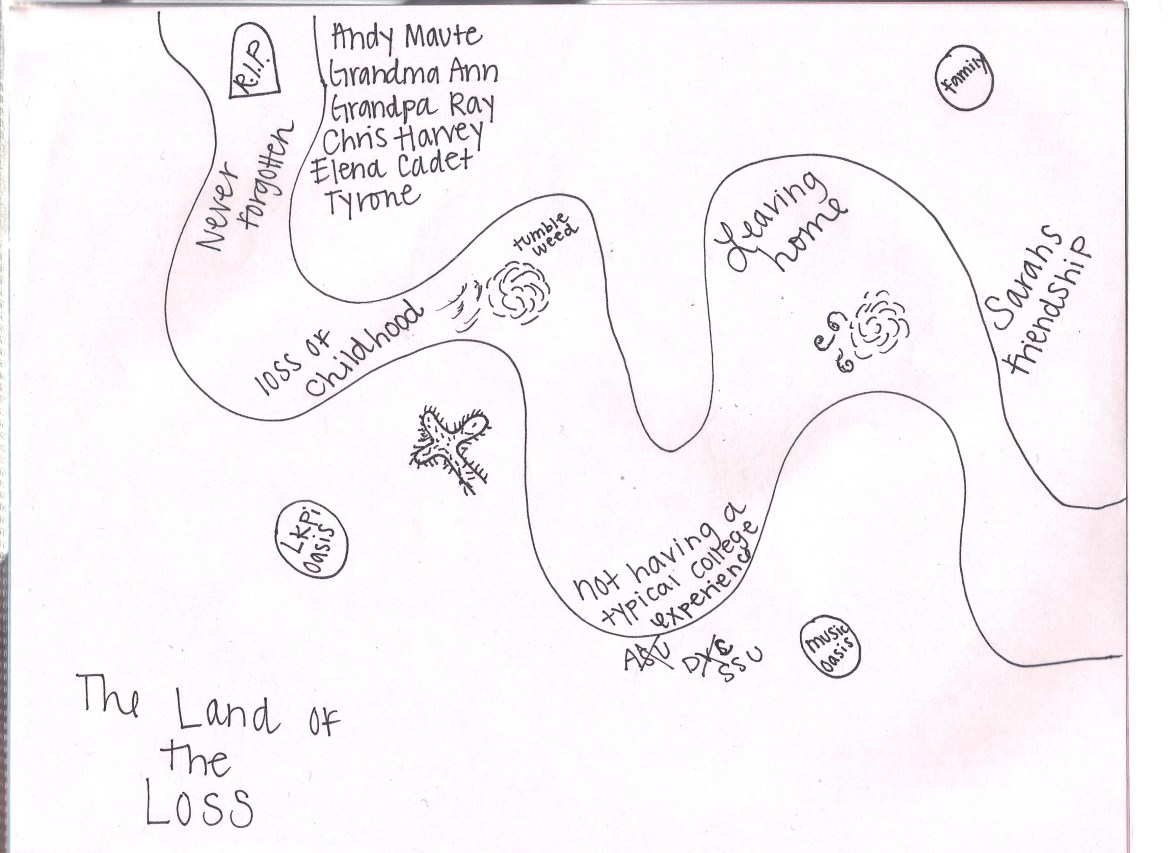 R.I.P.
Andy Maute
Grandma Ann
Grandpa Ray
Chris Harvey
Elena Cadet
Tyrone
Never
forgotten
family
tumble
weed
Leaving
home
Sarahs
friendship
loss of
childhood
LKPi
oasis
not having a
typical college
experience
ASU
SSU
music
oasis
The Land of
the
Loss